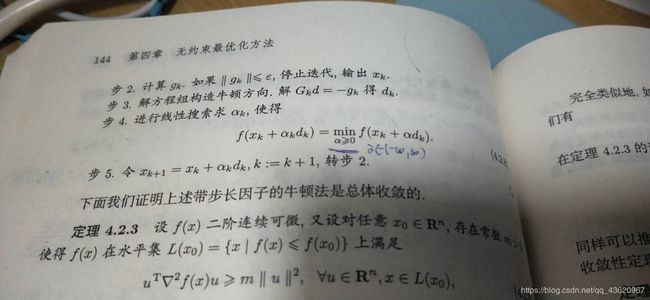 144 第四章 无约束最优化方法
步 2. 计算 gₖ. 如果 ‖ gₖ ‖⩽ ε, 停止迭代, 输出 xₖ.
步 3. 解方程组构造牛顿方向. 解 Gₖd = −gₖ 得 dₖ.
步 4. 进行线性搜索求 αₖ, 使得
f(xₖ + αₖdₖ) = min f(xₖ + αdₖ).
α⩾0
步 5. 令 xₖ₊₁ = xₖ + αₖdₖ, k := k + 1, 转步 2.
下面我们证明上述带步长因子的牛顿法是总体收敛的.
定理 4.2.3 设 f(x) 二阶连续可微, 又设对任意 x₀ ∈ Rⁿ, 存在常数 m >
使得 f(x) 在水平集 L(x₀) = {x | f(x) ⩽ f(x₀)} 上满足
uᵀ∇²f(x)u ⩾ m ‖ u ‖², ∀u ∈ Rⁿ, x ∈ L(x₀),
完全类似地, 如
们有
在定理 4.2.3 的
同样可以推
收敛性定理
https://blog.csdn.net/qq_43620967